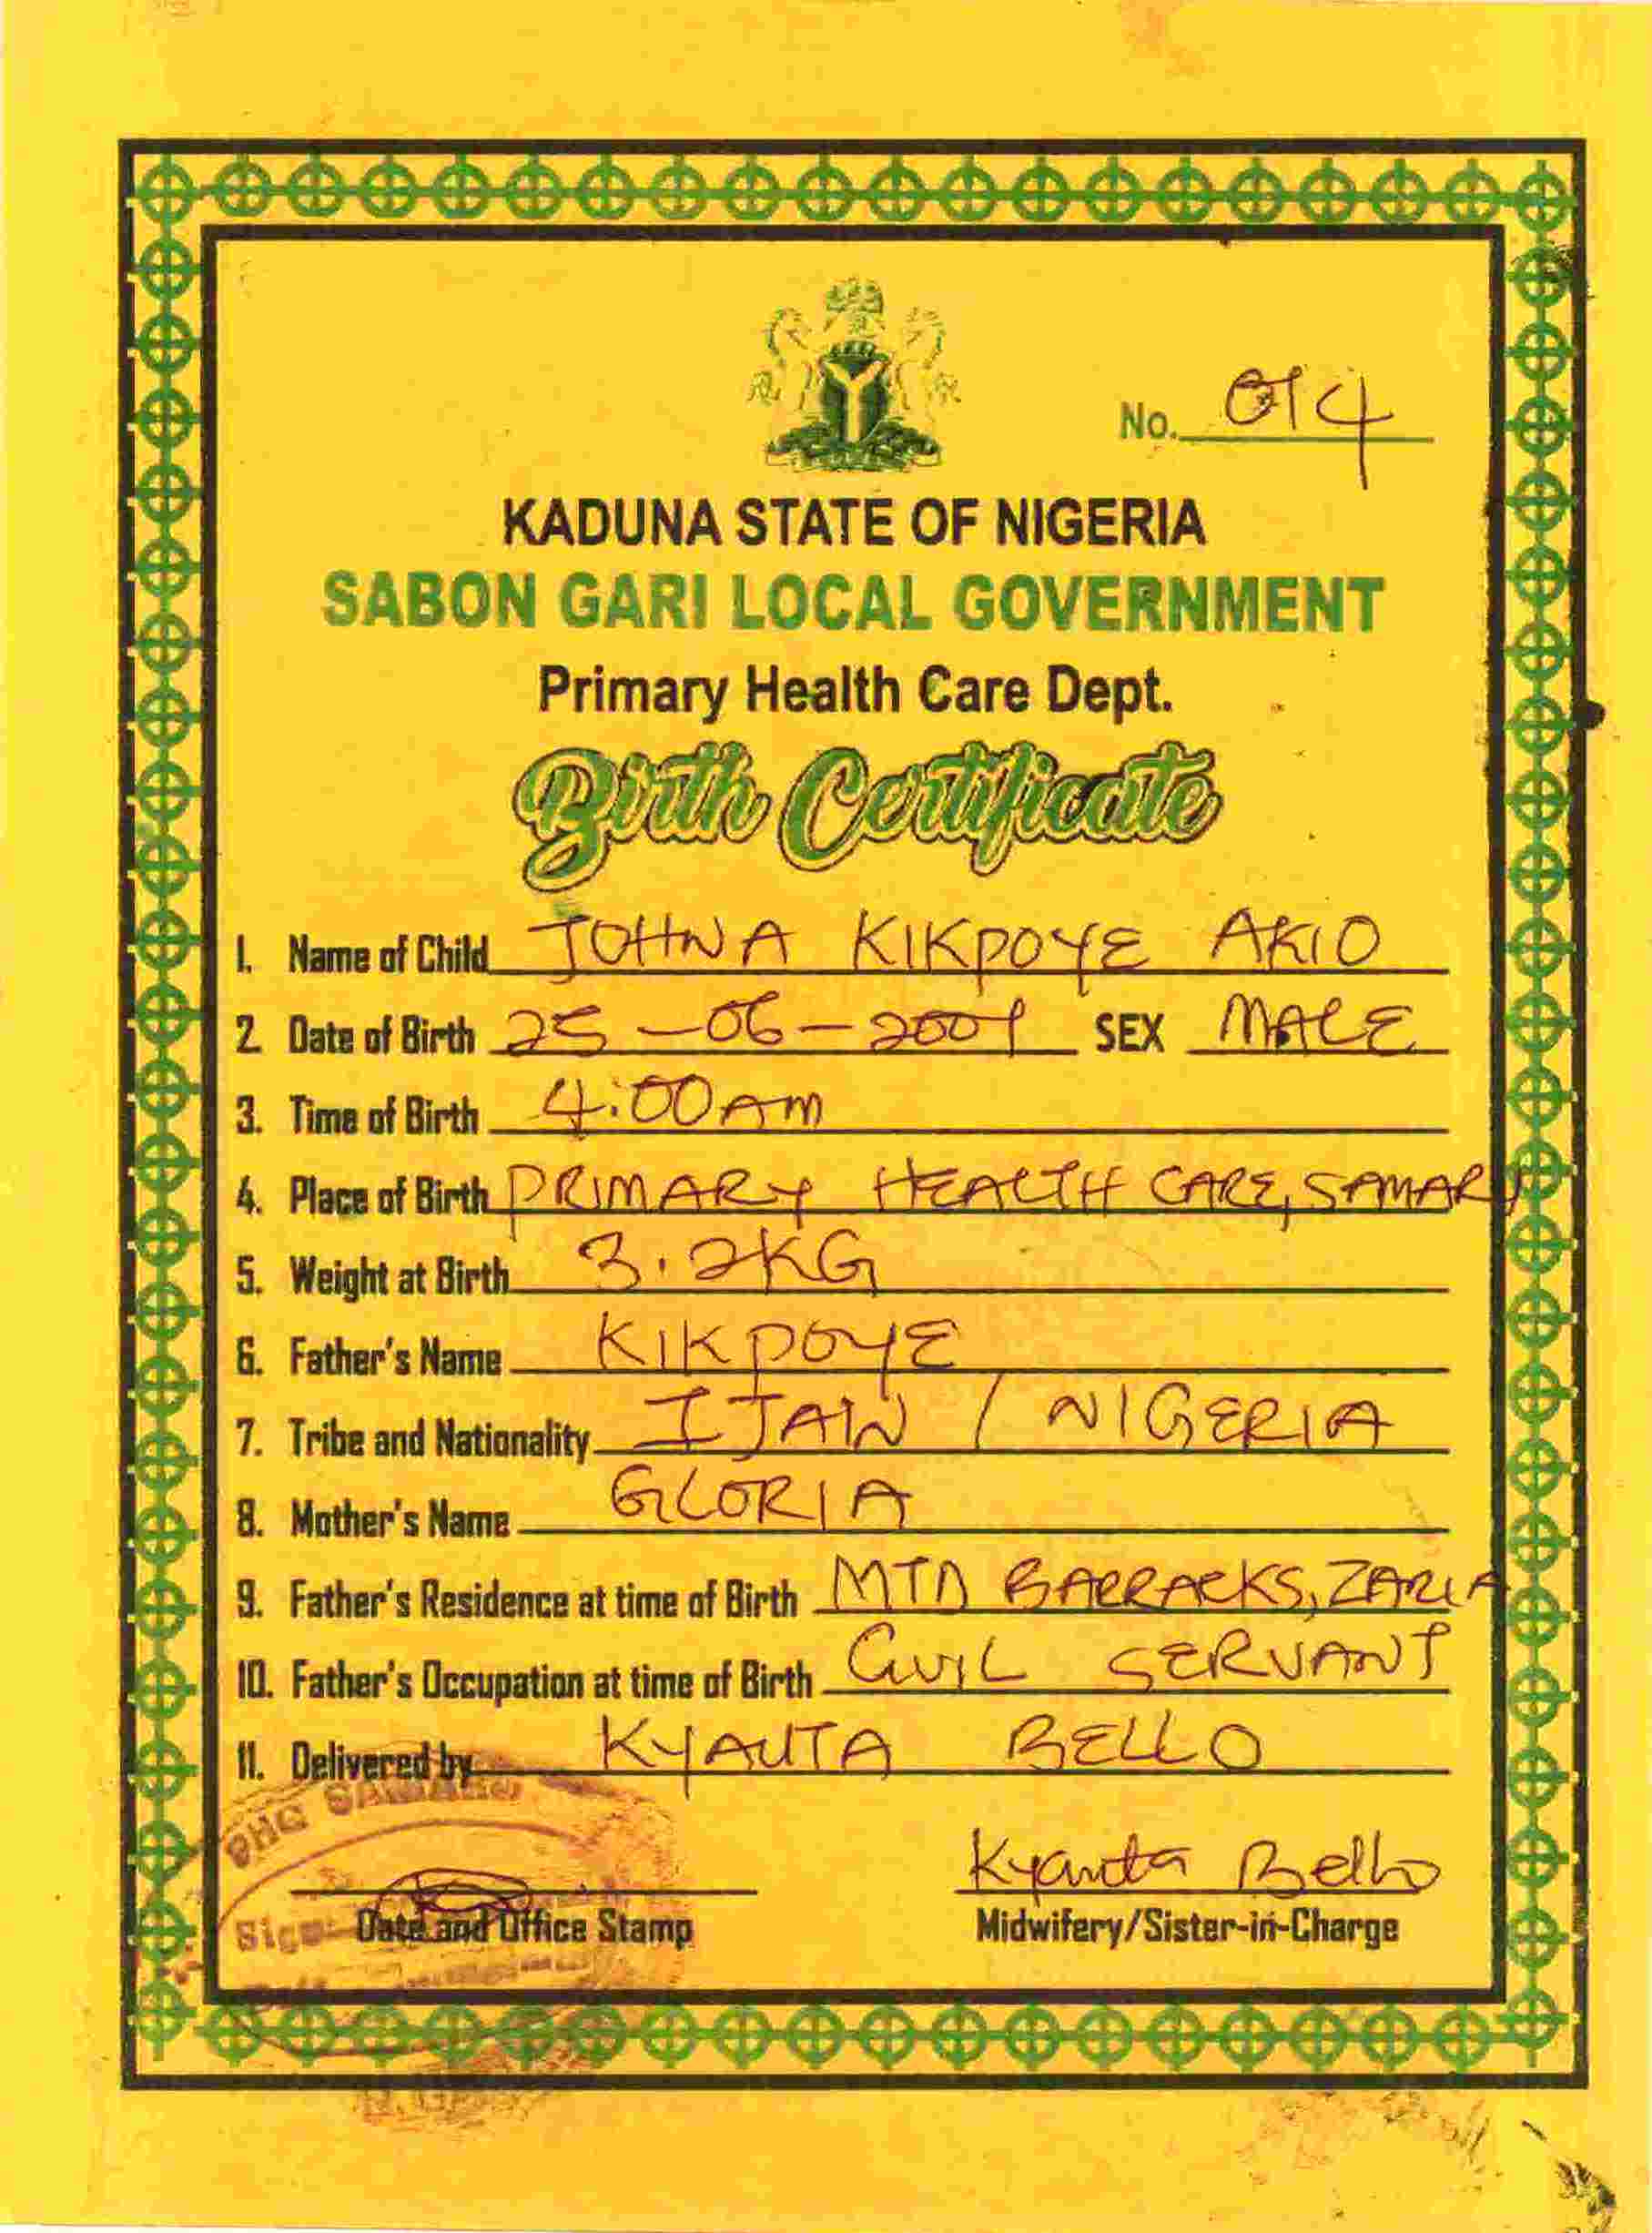 No. 014
KADUNA STATE OF NIGERIA
SABON GARI LOCAL GOVERNMENT
Primary Health Care Dept.
Birth Certificate
1. Name of Child JOHNA KIKPOYE AKIO
2. Date of Birth 25-06-2001 SEX MALE
3. Time of Birth 4:00AM
4. Place of Birth PRIMARY HEALTH CARE, SAMARU
5. Weight at Birth 3.2KG
6. Father's Name KIKPOYE
7. Tribe and Nationality IJAW / NIGERIA
8. Mother's Name GLORIA
9. Father's Residence at time of Birth MTD BARRACKS, ZARIA
10. Father's Occupation at time of Birth CIVIL SERVANT
11. Delivered by KYAUTA BELLO
PHC SAMARU
Kyauta Bello
Date and Office Stamp Midwifery/Sister-in-Charge